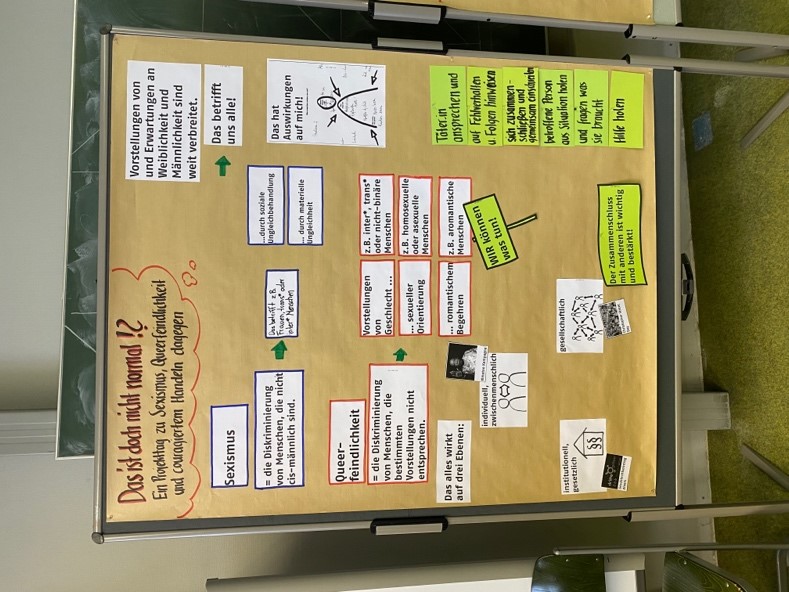 Das ist doch nicht normal!?
Ein Projekttag zu Sexismus, Queerfeindlichkeit
und couragiertem Handeln dagegen
Vorstellungen von
und Erwartungen an
Weiblichkeit und
Männlichkeit sind
weit verbreitet.
Das betrifft
uns alle!
Das hat
Auswirkungen
auf mich!
Sexismus
= die Diskriminierung
von Menschen, die nicht
cis-männlich sind.
Das betrifft z.B.
Frauen, trans* oder
inter* Menschen
...durch soziale
Ungleichbehandlung
... durch materielle
Ungleichheit
Queer-
feindlichkeit
= die Diskriminierung
von Menschen, die
bestimmten
Vorstellungen nicht
entsprechen.
Vorstellungen
von
Geschlecht ...
z.B. inter*, trans*
oder nicht-binäre
Menschen
... sexueller
Orientierung
z.B. homosexuelle
oder asexuelle
Menschen
... romantischem
Begehren
z.B. aromantische
Menschen
Das alles wirkt
auf drei Ebenen:
individuell,
zwischenmenschlich
institutionell,
gesetzlich
§§
gesellschaftlich
WIR können
was tun!
Täter:in
ansprechen und
auf Fehlverhalten
u. Folgen hinweisen
sich zusammen-
schließen und
gemeinsam einstehen
betroffene Person
aus Situation holen
und fragen was
sie braucht
Hilfe holen
Der Zusammenschluss
mit anderen ist wichtig
und bestärkt!